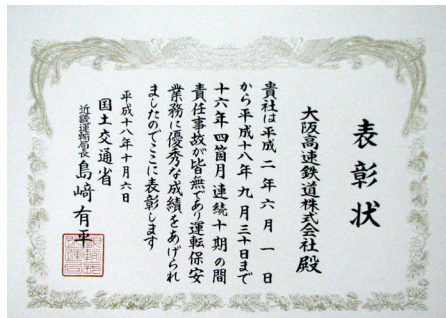 表彰状
大阪高速鉄道株式会社殿
貴社は平成二年六月一日
から平成十八年九月三十日まで
十六年四箇月連続十期の間
責任事故が皆無であり運転保安
業務に優秀な成績をあげられ
ましたのでここに表彰します
平成十八年十月六日
国土交通省
近畿運輸局長 島﨑有平